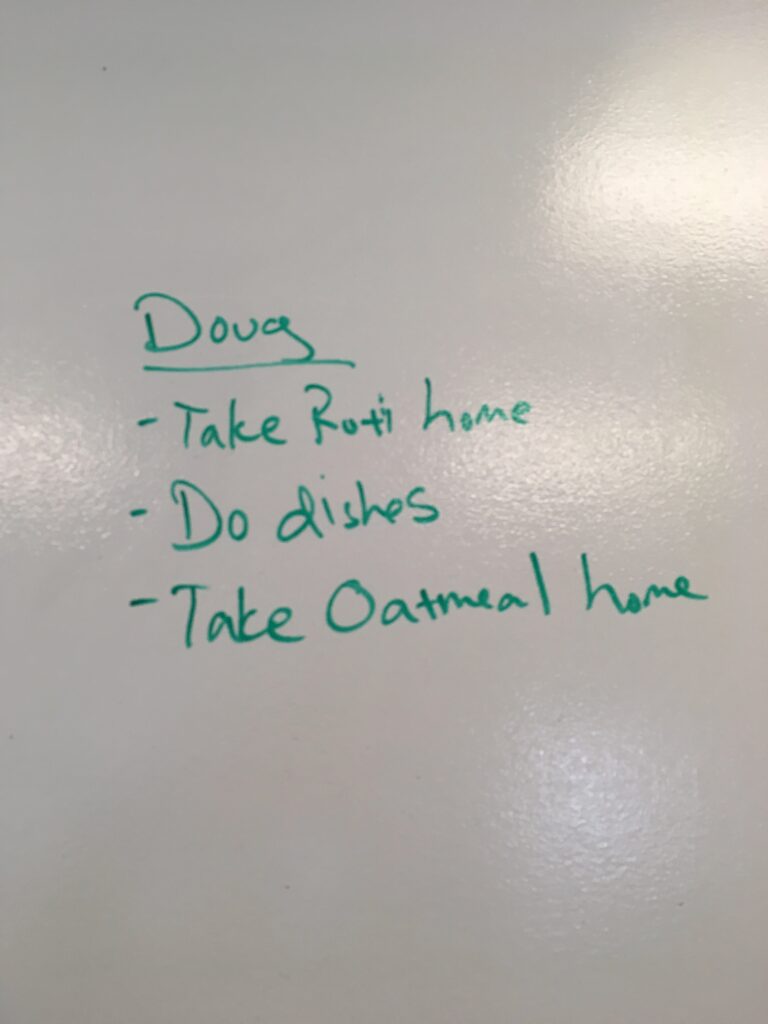 Doug
- Take Roti home
- Do dishes
- Take Oatmeal home